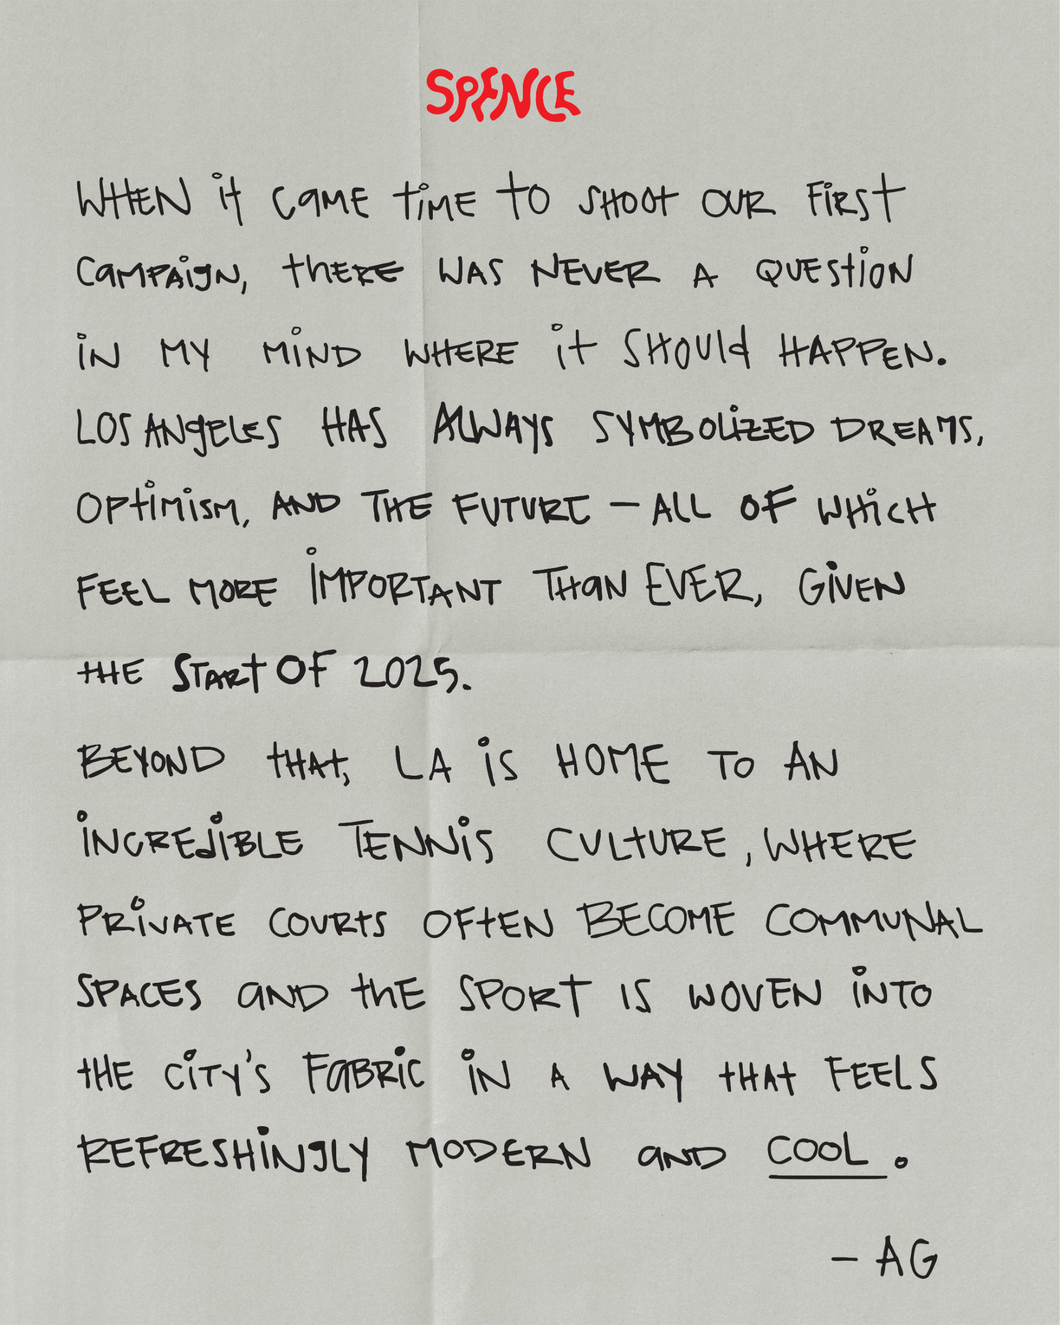 SPENCE
WHEN it CAME tiME to SHOOt OUR FiRSt
CAMPAigN, thERE WAS NEVER A QUEStiON
iN MY MiND WHERE it SHOUld HAPPEN.
LOS ANgELES HAS ALWAYS SYMBOLiZED DREAMS,
OPtiMiSM, AND THE FUTURE – ALL OF WHiCH
FEEL MORE iMPORTANT THaN EVER, GiVEN
tHE START OF 2025.
BEYOND tHAt, LA iS HOME TO AN
iNCREdiBLE TENNiS CULtURE, WHERE
PRiVATE COURtS OFtEN BECOME COMMUNAL
SPACES aND thE SPORT IS WOVEN iNTO
tHE CiTY'S FaBRiC iN A WAY tHAt FEELS
REFRESHiNGLY MODERN aND COOL.
– AG